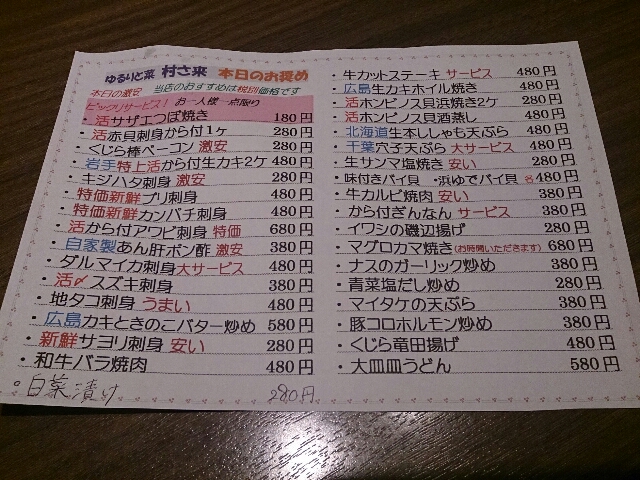 ゆるりと菜 村さ来 本日のお奨め
本日の激安 当店のおすすめは税別価格です
ビックリサービス! お一人様一点限り
・活サザエつぼ焼き 180円
・活赤貝刺身から付1ヶ 280円
・くじら棒ベーコン 激安 280円
・岩手特上活から付生カキ2ケ 480円
・キジハタ刺身 激安 280円
・特価新鮮ブリ刺身 480円
・特価新鮮カンパチ刺身 480円
・活から付アワビ刺身 特価 680円
・自家製あん肝ポン酢 激安 380円
・ダルマイカ刺身大サービス 480円
・活〆スズキ刺身 380円
・地タコ刺身 うまい 480円
・広島カキときのこバター炒め 580円
・新鮮サヨリ刺身 安い 280円
・和牛バラ焼肉 480円
。白菜漬け 280円
・牛カットステーキ サービス 480円
・広島生カキホイル焼き 480円
・活ホンビノス貝浜焼き2ケ 280円
・活ホンビノス貝酒蒸し 480円
・北海道生本ししゃも天ぷら 480円
・千葉穴子天ぷら 大サービス 480円
・生サンマ塩焼き 安い 480円
・味付きバイ貝 ・浜ゆでバイ貝 各480円
・牛カルビ焼肉 安い 380円
・から付ぎんなん サービス 380円
・イワシの磯辺揚げ 280円
・マグロカマ焼き(お時間いただきます) 680円
・ナスのガーリック炒め 380円
・青菜塩だし炒め 280円
・マイタケの天ぷら 380円
・豚コロホルモン炒め 380円
・くじら竜田揚げ 480円
・大皿皿うどん 580円